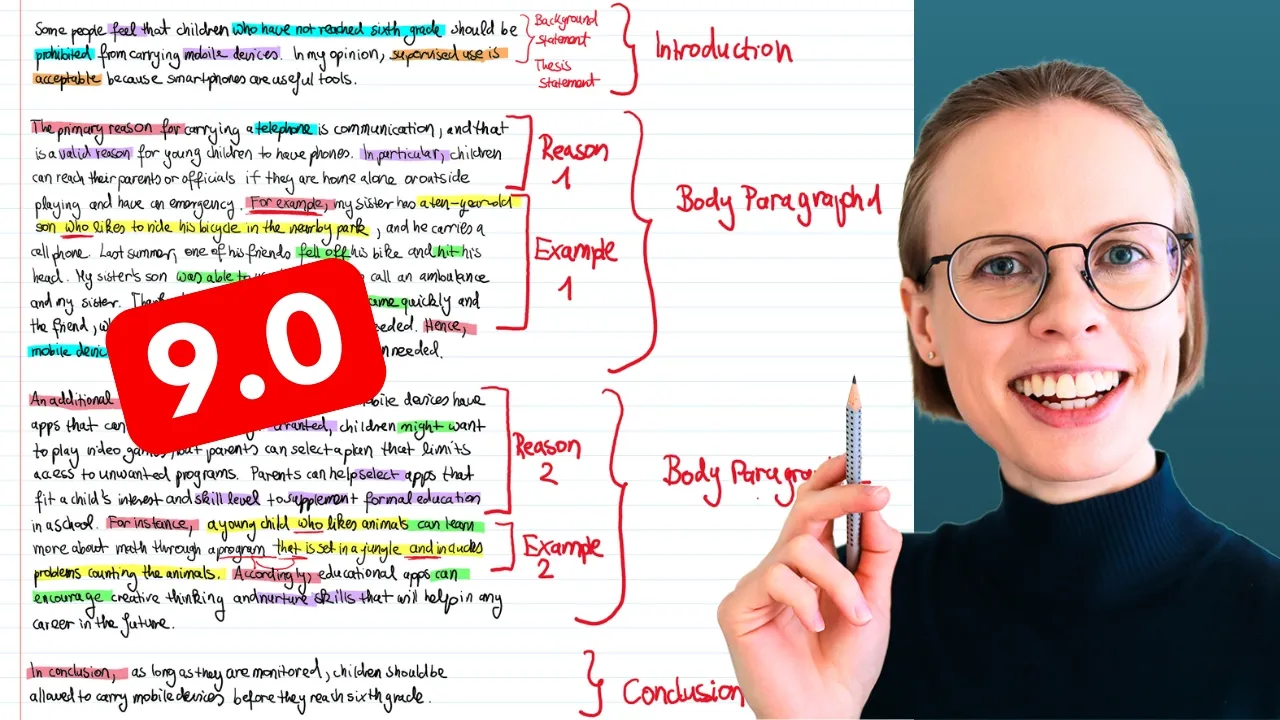 Some people feel that children who have not reached sixth grade should be
prohibited from carrying mobile devices. In my opinion, supervised use is
acceptable because smartphones are useful tools.
Background
statement
Thesis
statement
Introduction
The primary reason for carrying a telephone is communication, and that
is a valid reason for young children to have phones. In particular, children
can reach their parents or officials if they are home alone or outside
playing and have an emergency. For example, my sister has a ten-year-old
son who likes to ride his bicycle in the nearby park, and he carries a
cell phone. Last summer, one of his friends fell off his bike and hit his
head. My sister's son was able to call an ambulance
and my sister. came quickly and
the friend, Hence,
mobile needed.
Reason
1
Example
1
Body Paragraph 1
9.0
An additional mobile devices have
apps that can children might want
to play video games, but parents can select a plan that limits
access to unwanted programs. Parents can help select apps that
fit a child's interest and skill level to supplement formal education
in a school. For instance, a young child who likes animals can learn
more about math through a program that is set in a jungle and includes
problems counting the animals. Accordingly, educational apps can
encourage creative thinking and nurture skills that will help in any
career in the future.
Reason
2
Example
2
Body
In conclusion, as long as they are monitored, children should be
allowed to carry mobile devices before they reach sixth grade.
Conclusion